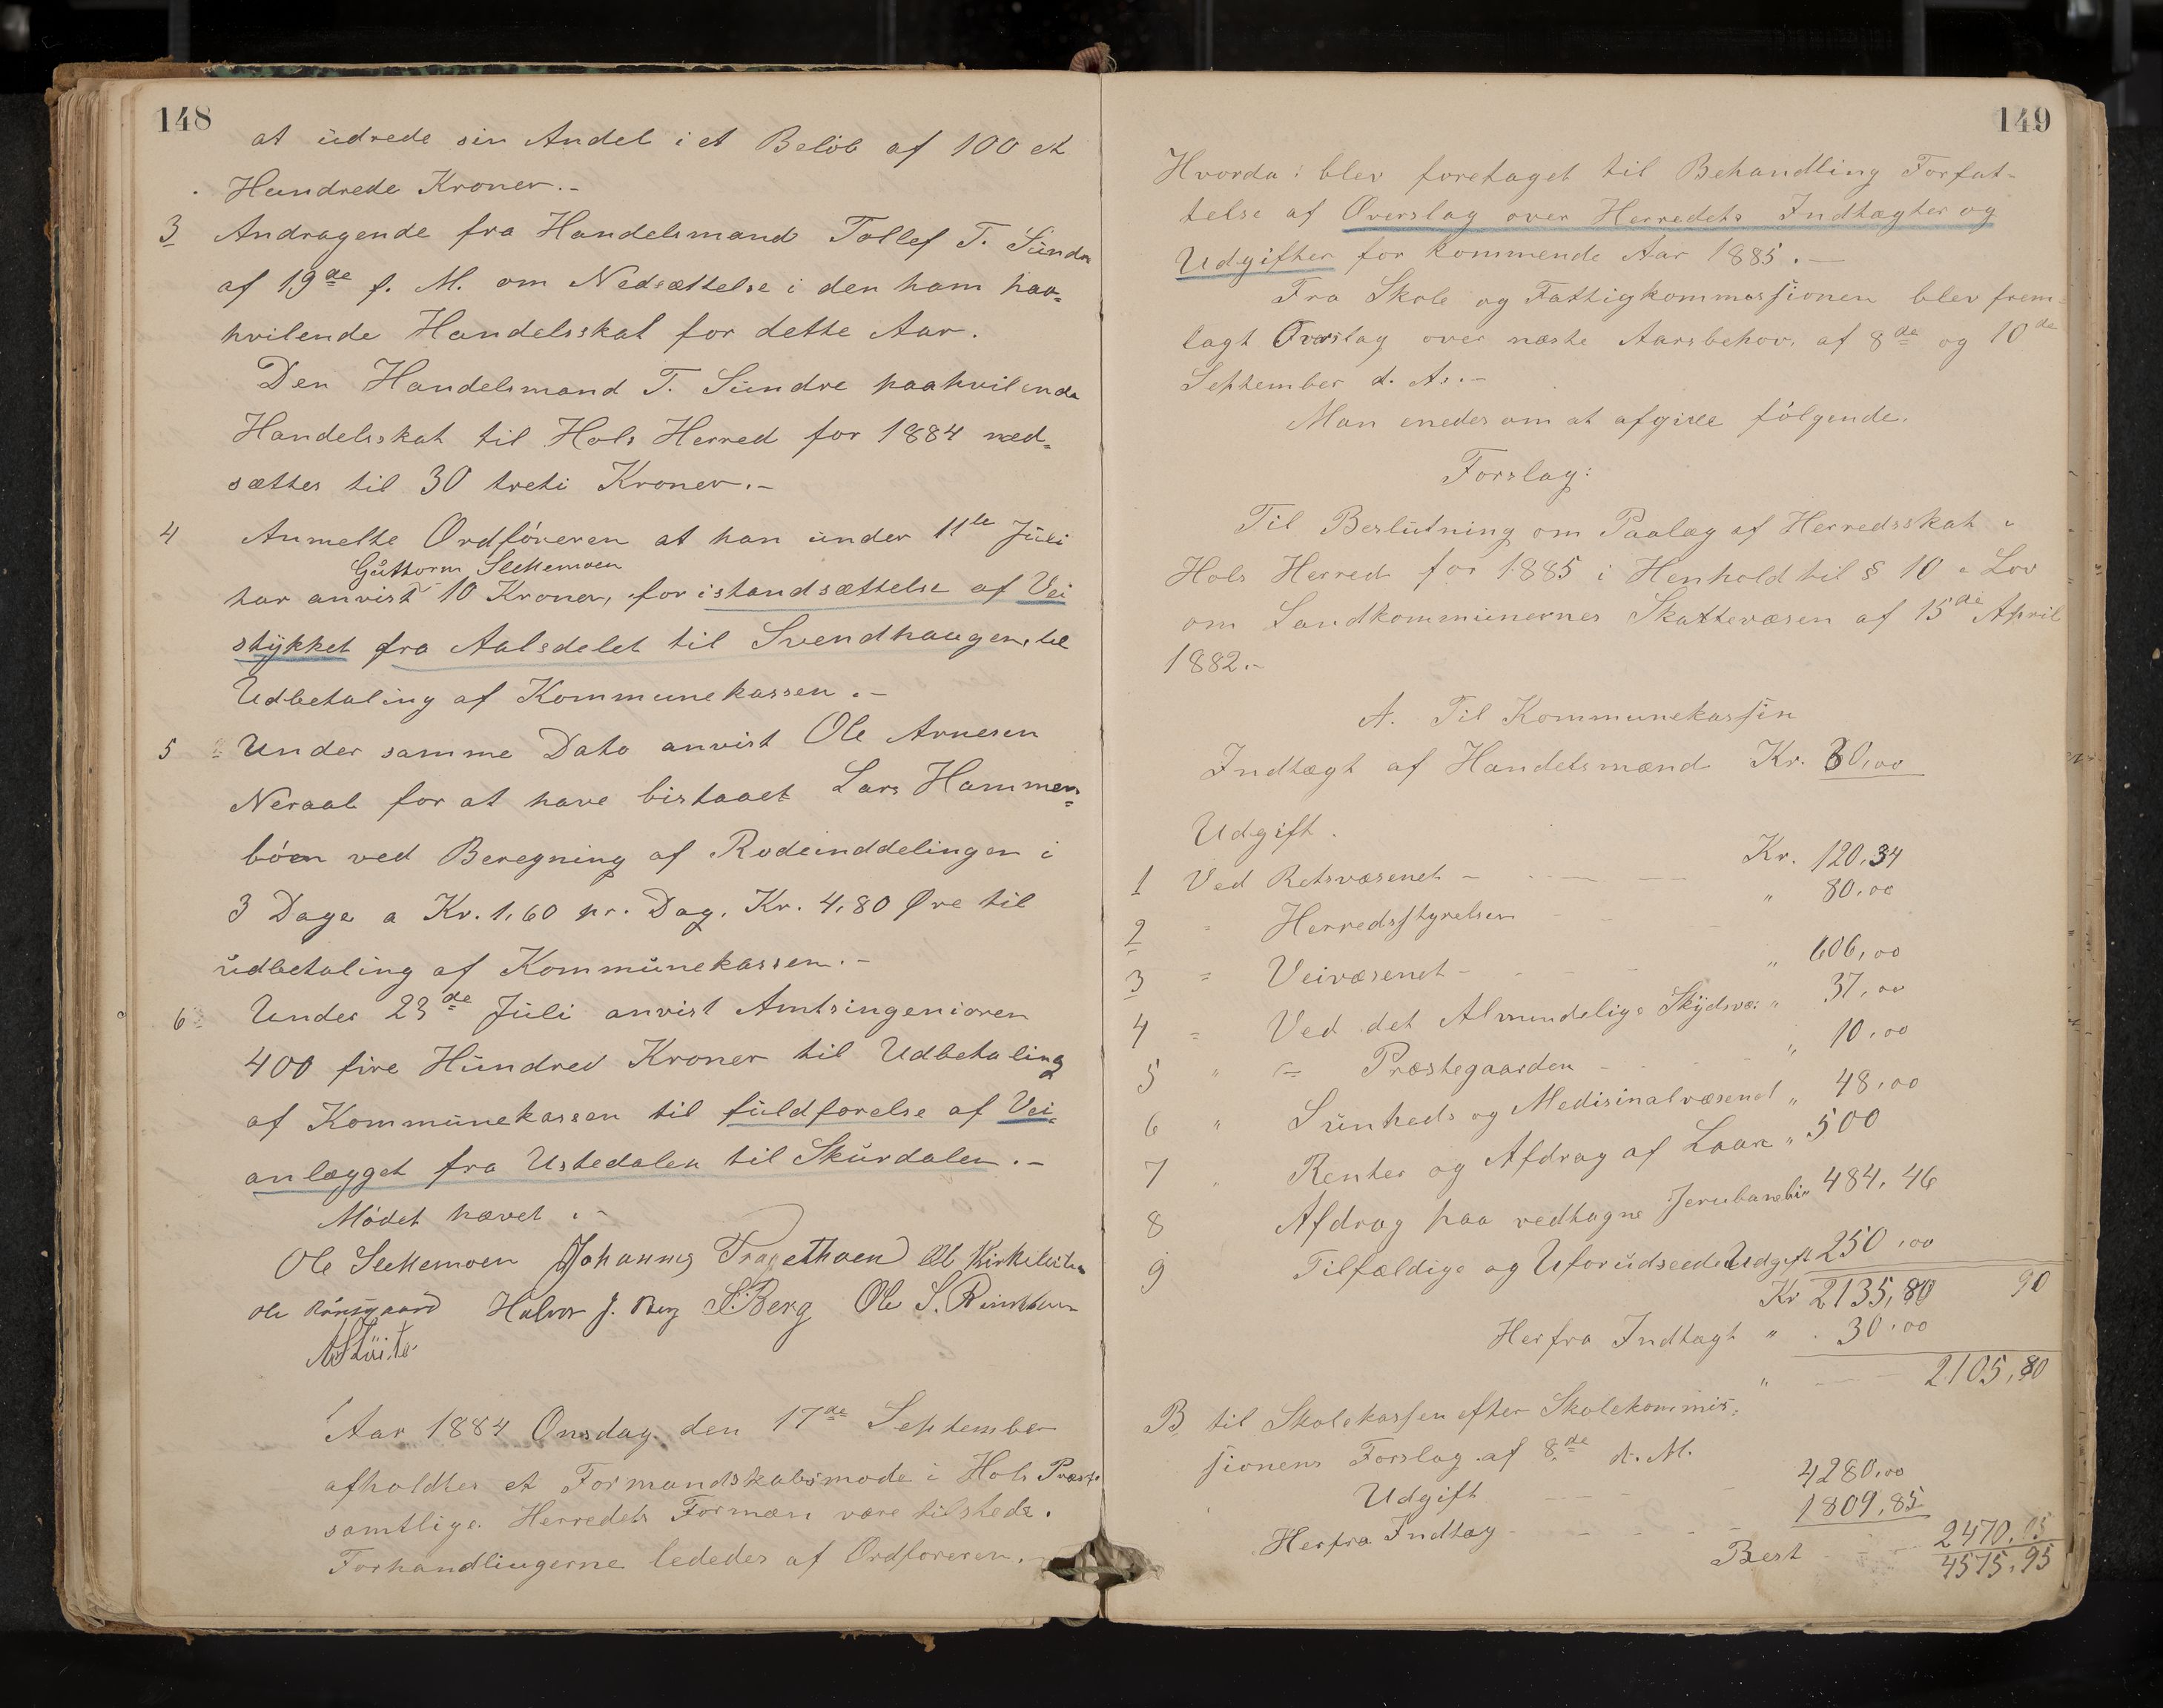 148
at udrede sin Andel i et Beløb af 100 et
Hundrede Kroner.-
3 Andragende fra Handelsmand Tollef T. Sundre
af 19de f. M. om Nedsættelse i den ham paa-
hvilende Handelsskat for dette Aar.
Den Handelsmand T. Sundre paahvilende
Handelsskat til Hols Herred for 1884 ned-
sættes til 30 treti Kroner.-
4 Anmelte Ordføreren at han under 11te Juli
Guttorm Slettemoen
har anvist 10 Kroner, for istandsættelse af Vei
stykket fra Aalsdelet til Svendhaugen, til
Udbetaling af Kommunekassen.-
5 Under samme Dato anvist Ole Arnesen
Neraal for at have bistaaet Lars Hammers-
bøen ved Beregning af Rodeinddelingen i
3 Dage a Kr. 1,60 pr. Dag, Kr. 4,80 Øre til
udbetaling af Kommunekassen.-
6 Under 23de Juli anvist Amtsingeniøren
400 fire Hundred Kroner til Udbetaling
af Kommunekassen til fuldførelse af Vei-
anlægget fra Ustedalen til Skurdalen.-
Mødet hævet.-
Ole Slettemoen Johannes Tragethoen Ole Kirkeleite
Ole Halvor J. Berg S. Berg Ole S.
Aar 1884 Onsdag den 17de September
afholdtes et Formandskabsmøde i Hols Præst.
samtlige Herredets Formæn være tilstede.
Forhandlingerne lededes af Ordføreren.
149
Hvorda: blev foretaget til Behandling Forfat-
telse af Overslag over Herredets Indtægter og
Udgifter for kommende Aar 1885.-
Fra Skole og Fattigkommassionen blev frem-
lagt Overslag over næste Aarsbehov, af 8de og 10de
September d. A.-
Man enedes om at afgive følgende.
Forslag:
Til Beslutning om Paalæg af Herredsskat i
Hols Herred for 1885 i Henhold til § 10 i Lov
om Landkommunernes Skattevæsen af 15de April
1882.-
A. Til Kommunekassen
Indtægt af Handelsmænd Kr. 30,00
Udgift.
1 Ved Retsvæsenet - Kr. 120,34
2 " Herredsstyrelsen " 80,00
3 " Veivæsenet - " 606,00
4 " Ved det Almindelige Skydsvæ: " 37,00
5 " " Præstegaarden " 10,00
6 " Sunheds og Medisinalvæsend " 48,00
7 " Renter og Afdrag af Laan " 500
8 Afdrag paa vedtagne Jernbanebi" 484,46
9 Tilfældige og Uforudseede Udgift 250,00
Kr 2135,80 90
Herfra Indtagt " 30,00
" 2105,80
B til Skolekassen efter Skolekommis-
sionens Forslag af 8de d. M.
Udgift 4280,00
Herfra Indtæg 1809,85
2470,15
Best 4575,95